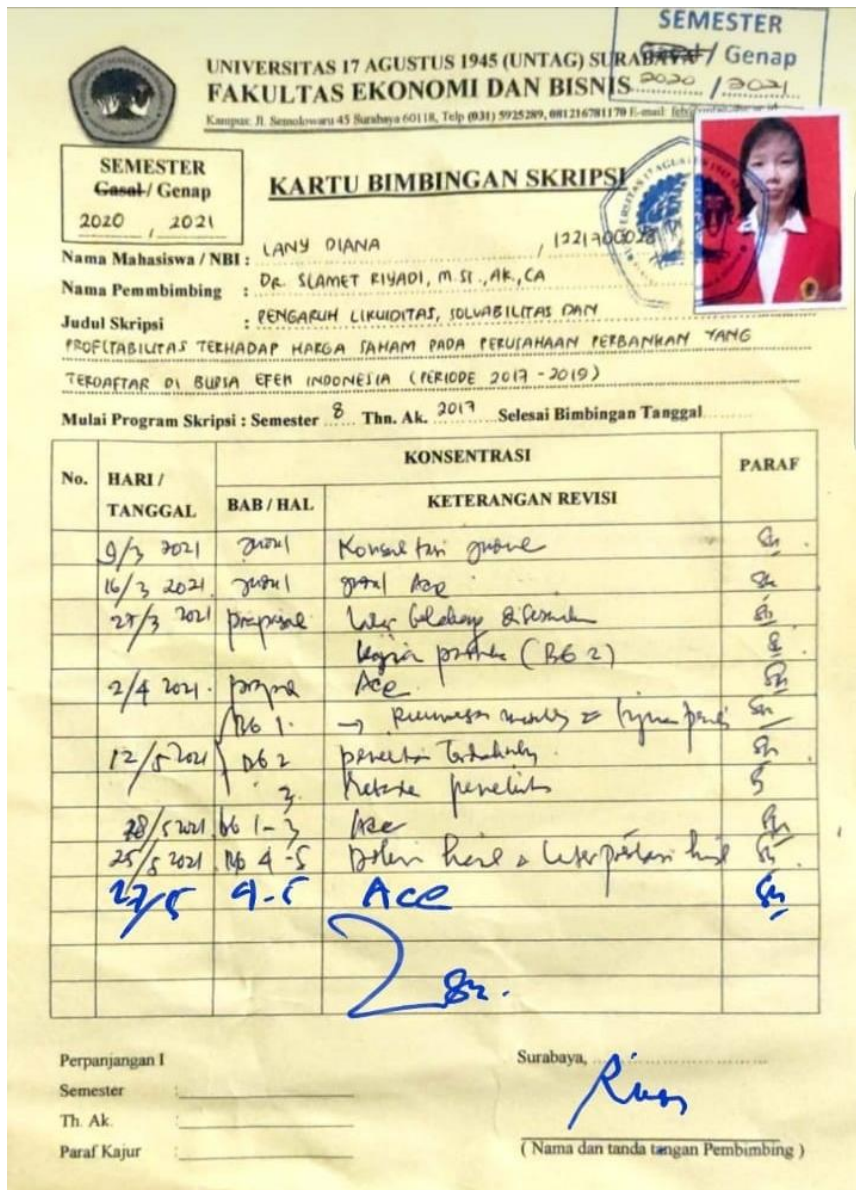 SEMESTER
Gasal / Genap
2020 / 2021
UNIVERSITAS 17 AGUSTUS 1945 (UNTAG) SURABAYA
FAKULTAS EKONOMI DAN BISNIS
Kampus: Jl. Semolowaru 45 Surabaya 60118, Telp (031) 5925289, 081216781170 E-mail:
SEMESTER
Gasal / Genap
2020 , 2021
KARTU BIMBINGAN SKRIPSI
Nama Mahasiswa / NBI : LANY DIANA , 1221700028
Nama Pemmbimbing : DR. SLAMET RIYADI, M.SI., AK., CA
Judul Skripsi : PENGARUH LIKUIDITAS, SOLVABILITAS DAN
PROFITABILITAS TERHADAP HARGA SAHAM PADA PERUSAHAAN PERBANKAN YANG
TERDAFTAR DI BURSA EFEK INDONESIA (PERIODE 2017 - 2019)
Mulai Program Skripsi : Semester 8 Thn. Ak. 2017 Selesai Bimbingan Tanggal
No. HARI / TANGGAL KONSENTRASI PARAF
BAB / HAL KETERANGAN REVISI
9/3 2021 Judul Konsultasi Judul
16/3 2021 Judul Judul Acc
2021 proposal Latar belakang
(Bab 2)
2/4 2021 Acc
Bab 1
12/5 2021 Bab 2 terdahulu
3 Metode
/5 2021 bab 1-3 Acc
25/5 2021 Bab 4-5
27/5 4-5 Acc
Perpanjangan I
Semester :
Th. Ak. :
Paraf Kajur :
Surabaya,
( Nama dan tanda tangan Pembimbing )